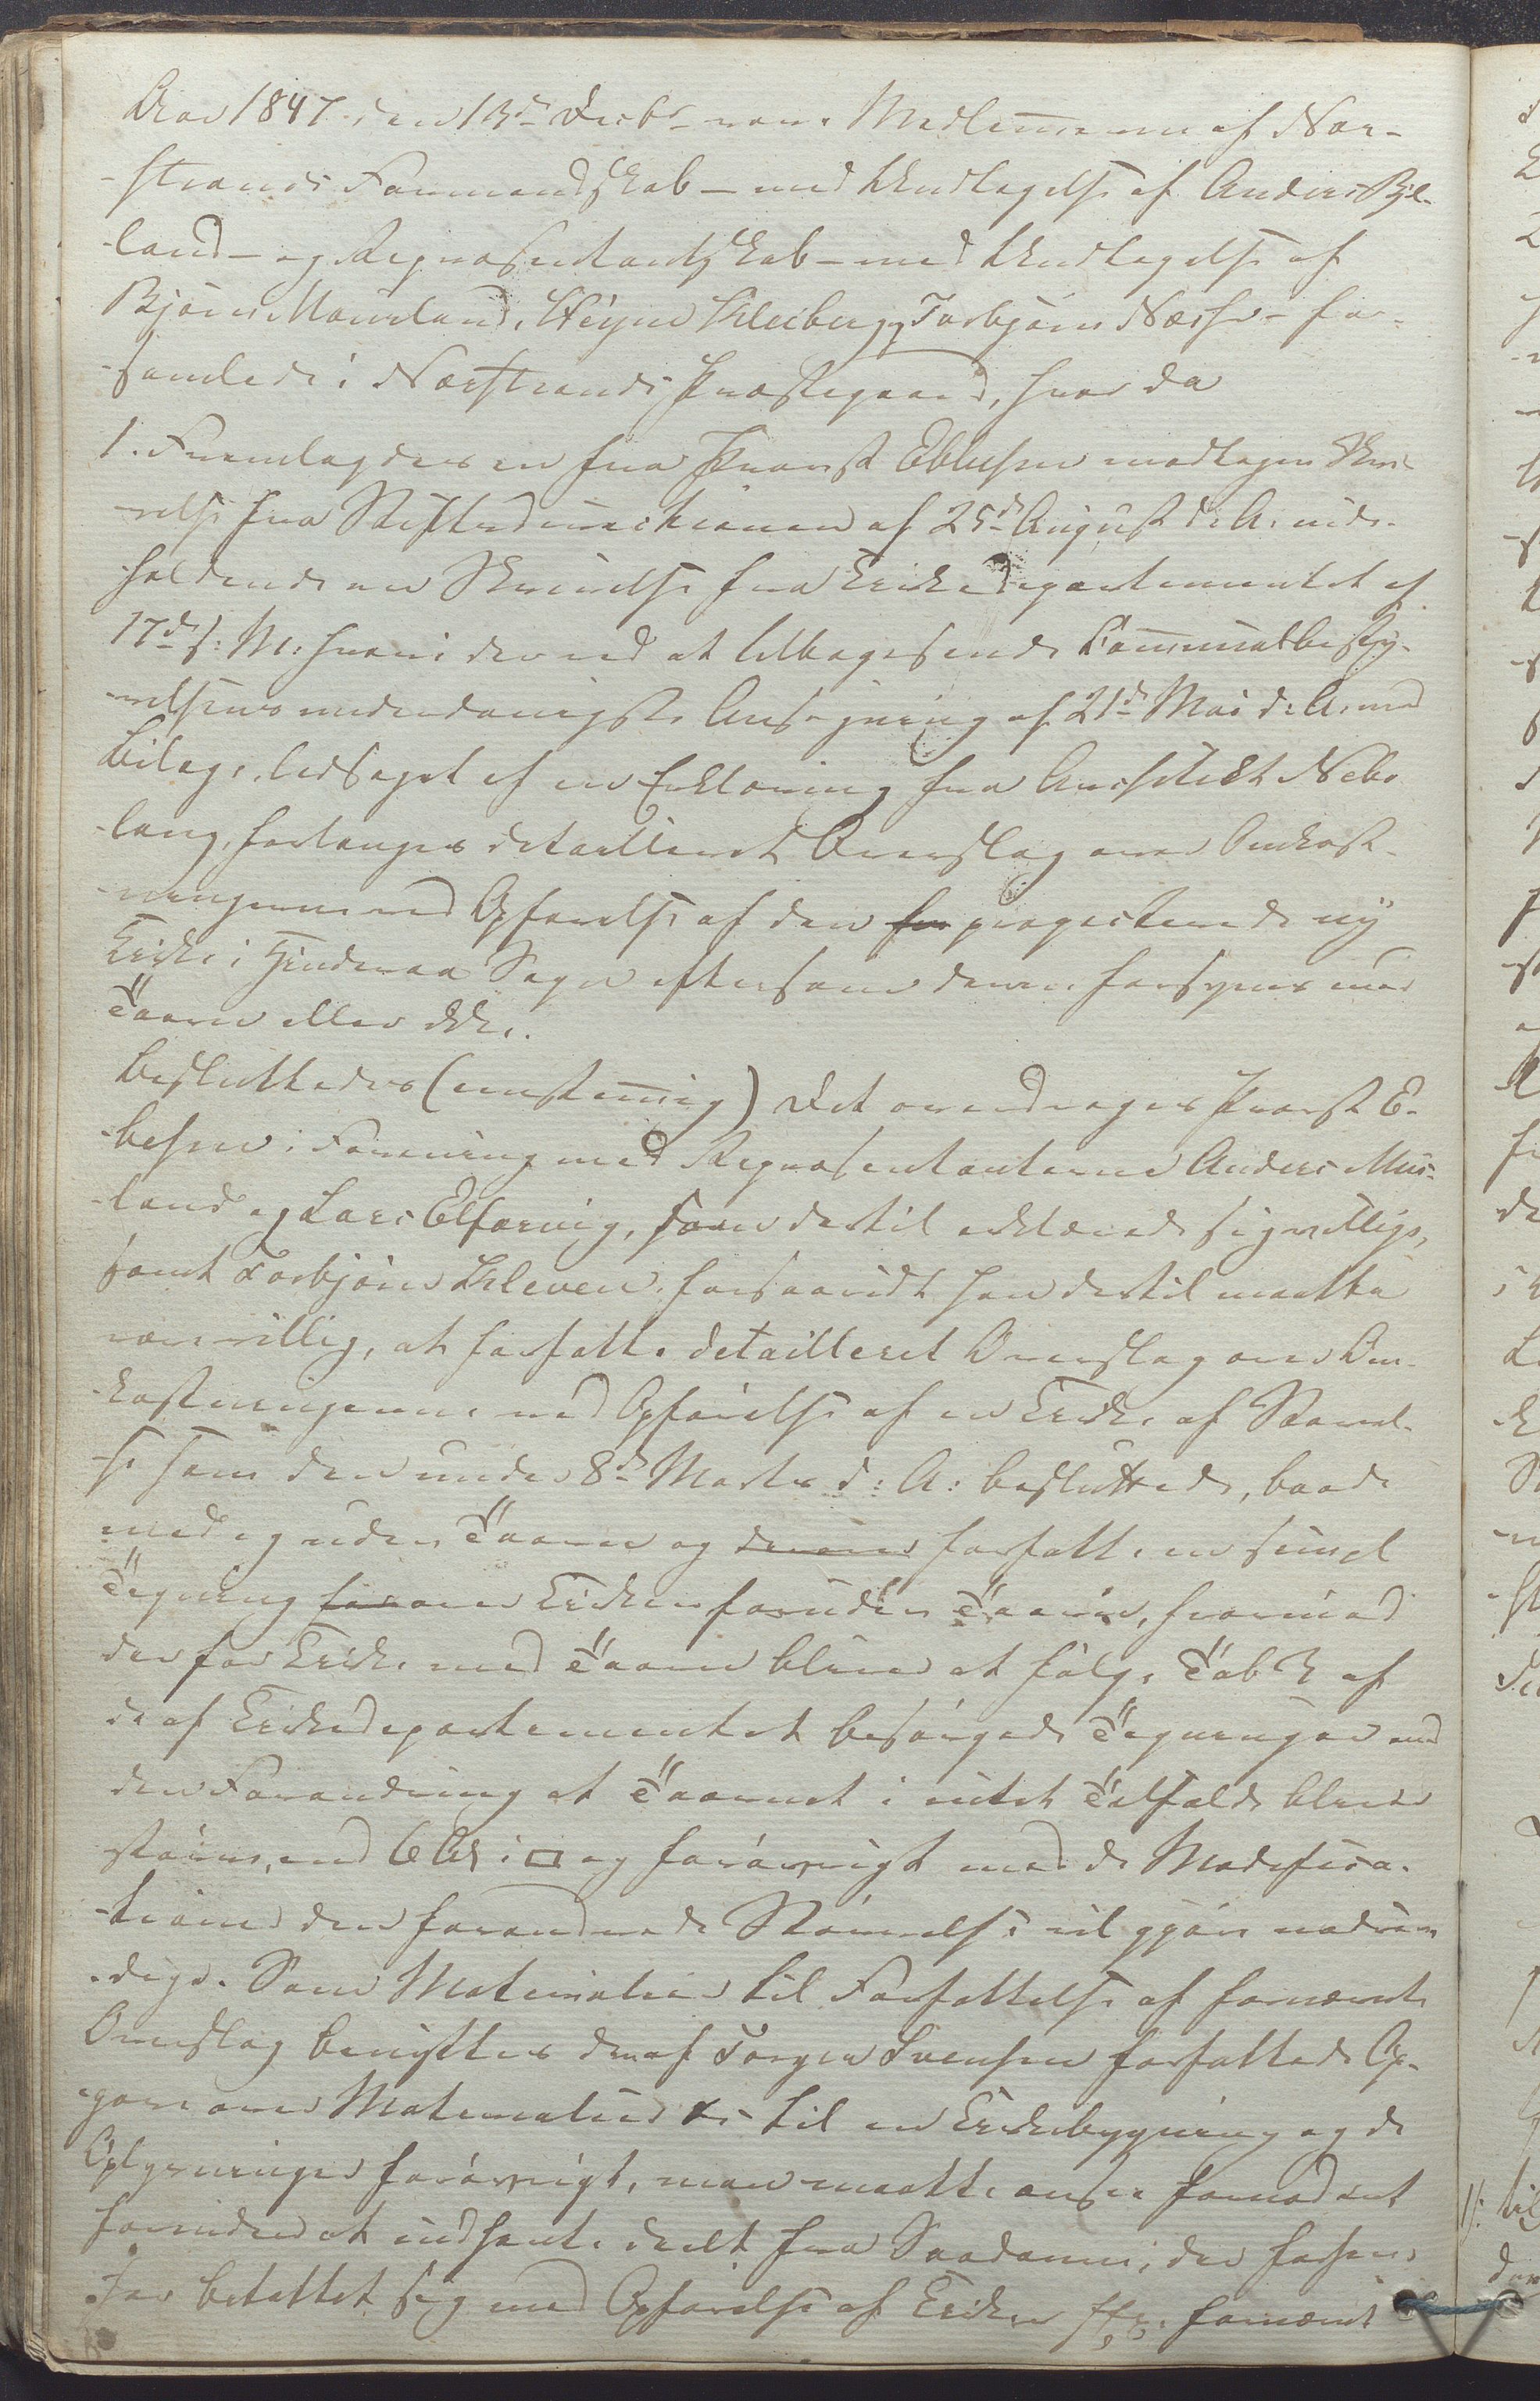 Aar 1847. den 13de Decbr vare Medlemmerne af Nær-
-strands Formandskab – med Undtagelse af Anders Bje-
-land – og Repræsentantskab – med Undtagelse af
Bjørn Mourland, Steyne Kleiberg, Torbjørn Næsse – for-
-samlede i Nærstrands Præstegaard, hvor da
1. Fremlagdes en fra Provst Ebbesen modtagen Skri-
-velse fra Stiftsdirectionen af 25de August d: A: inde-
-holdende en Skrivelse fra Kirkedepartementet af
17de s: M: hvori der ved at tilbagesende Communalbesty-
-relsens underdanigste Ansøgning af 21de Mai d: A: med
Bilage, ledsaget af en Erklæring fra Architekt Nebe
-lang, forlanges detailleret Overslag over Omkost-
-ningerne ved Opførelse af den for projecterede ny
Kirke i Hinderaa Sogn eftersom denne forsynes med
Taarn eller ikke.
Besluttedes (eenstemmig) Det overdrages Provst E-
-besen i Forening med Repræsentanterne Anders Mus-
-land og Lars Elfarvig, som dertil erklærede sig villige,
samt Torbjørn Kleven, forsaavidt han dertil maatte
være villig, at forfatte detailleret Overslag over Om-
-kostningerne ved Opførelse af en Kirke af Størrel-
-se som den under 8de Marts d: A: besluttede, baade
med og uden Taarn og derover forfatte en simpel
Tegning for over Kirken foruden Taarn, hvorimod
der for Kirke med Taarn bliver at følge Tab 2 af
de af Kirkedepartementet besørgede Tegninger med
den Forandring at Taarnet i intet Tilfælde bliver
større, end 6 Al: i □ og forøvrigt med de Modifica-
-tioner den forandrede Størrelse vil gjøre nødven
-dige. Som Materialier til Forfattelse af fornævnte
Overslag benyttes den af Torger Svensen forfattede Op-
-gave over Materialier &c til en Kirkebygning og de
Oplysninger forøvrigt, man maatte ansee fornødent
foruden at indhente deelt fra Saadanne, der forhen
har befattet sig med Opførelse af Kirker ff. fornævnt